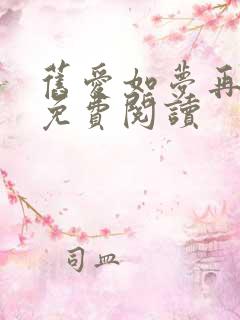 舊愛如夢再
免費閱讀
司皿